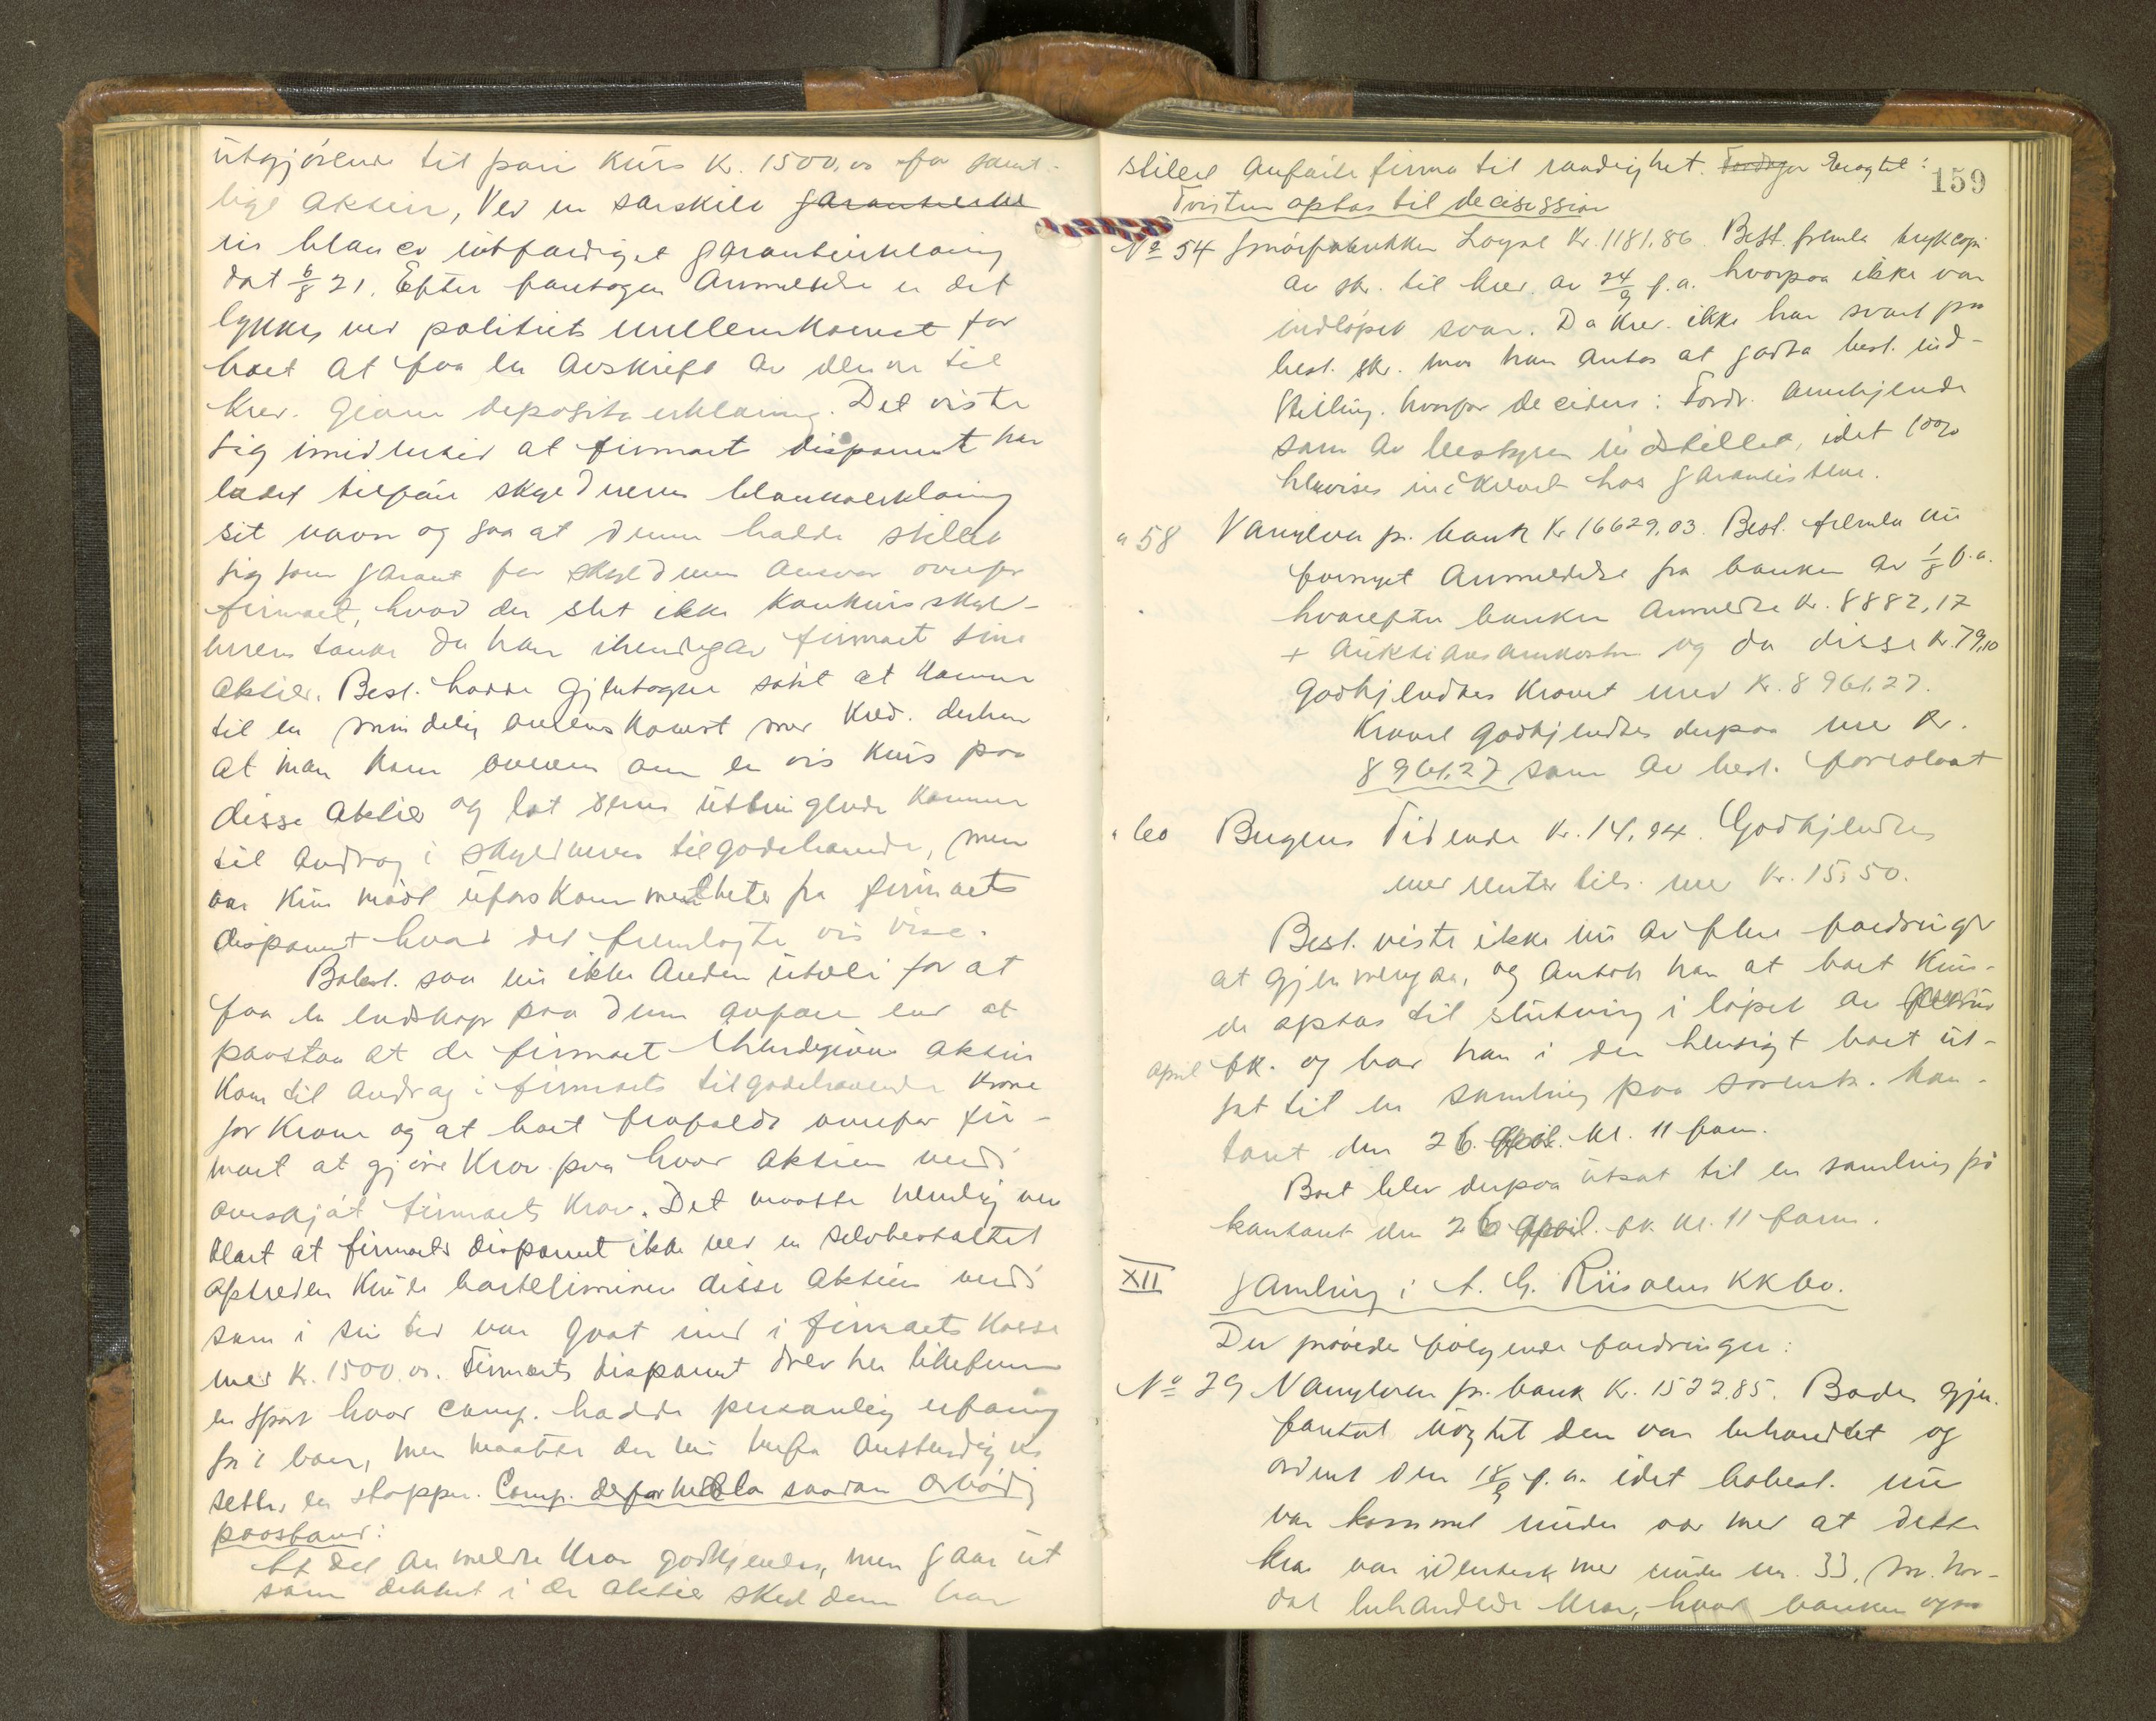 utgjörende til pari kurs kr. 1500.00 for samt-
lige aktier, Ved en særskilt garantierklæ
in blanco utfærdiget garantierklæring
dat 6/8 21. Efter foretagen anmeldelse er det
lykkes ved politiets mellemkomst for
boet at faa en avskrift av denne til
krev. givne deposita erklæring. Det viste
sig imidlertid at firmaet disponent har
ladet tilföie skyldnerens blankoerklæring
sit navn og saa at denne hadde stillet
sig som garant for skyldneren ansvar overfor
firmaet, hvad der slet ikke konkursskyld-
nerens tanke da han ihendegav firmaet sine
aktier. Best. hadde gjentagne sökt at komme
til en mindelig overenskomst med kred. derhen
at man kom overens om en vis kurs paa
disse aktier og lot deres utbringende komme
til avdrag i skyldneren tilgodehavende, men
var kun mödt uforskammetheter fra firmaets
disponent hvad det fremlagte vil vise.
Bobest. saa nu ikke anden utvei for at
faa en endskap paa denne affære end at
paastaa at de firmaet ihendegivne aktier
kom til avdrag i firmaets tilgodehavende krone
for krone og at boet frafaldt overfor fir-
maet at gjöre krav paa hvad aktiene verdi
overskjöt firmaets krav. Det maatte nemlig være
klart at firmaets disponent ikke ved en selvbestaltet
optreden kunde borteliminere disse aktiers verdi
som i sin tid var gaat ind i firmaets kasse
med kr. 1500.00. Firmaets disponent drev her
en sport hvor comp. hadde personlig erfaring
for i boer, men maatte der nu herfra anstendigvis
settes en stopper. Comp. derfor nedla saadan
paastand:
At det anmeldte krav godkjendes, men gaar ut
som dekket i de aktier skyldneren har
159
stillet anförte firma til raadighet. Fordringen Eragtet:
Tvisten optas til decisission
No 54 Smörfabrikken Loyal kr. 1181.86. Best. fremla trykkopi
av skr. til krev. av 24/9 f.a. hvorpaa ikke var
indlöpet svar. Da krev. ikke har svart paa
best. skr. maa han antas at godta best. ind-
stilling. hvorfor decideres: Fordr. anerkjendes
som av bestyren indstillet, idet 100%
henvises indkrævet hos garantistene.
" 58 Vanylven pr. bank kr 16629.03. Best. fremla nu
fornyet anmeldelse fra banken av 1/8 f.a.
hvorefter banken anmeldte kr. 8882,17
+ auktionsomkostn og da disse kr. 79,10
godkjendtes kravet med kr. 8961.27.
Kravet godkjendtes derpaa med kr.
8961.27 som av best. foreslaat
" 60 Bergens Tidende kr. 14.94. Godkjendtes
med renter tils. med kr. 15.50.
Best. viste ikke nu av flere fordringer
at gjennemgaa, og antok han at boet kun-
de optas til slutning i löpet av
april fk. og bad han i den hensigt boet ut-
sat til en samling paa sorensk. kon-
toret den 26. April. kl. 11 form.
Boet blev derpaa utsat til en samling på
kontoret den 26 april. fk kl. 11 form.
XII Samling i A. G. Riisølens KKbo.
Der prövedes fölgende fordringer:
No 29 Vanylven pr. bank kr. 1522.85. Boden gjen.
foretat uagtet den var behandlet og
ordnet den 18/9 f.a. idet bobest. nu
var kommet under vær med at dette
krav var identisk med under nr. 33, M. Nor-
dal behandlede krav, hvor banken ogsaa